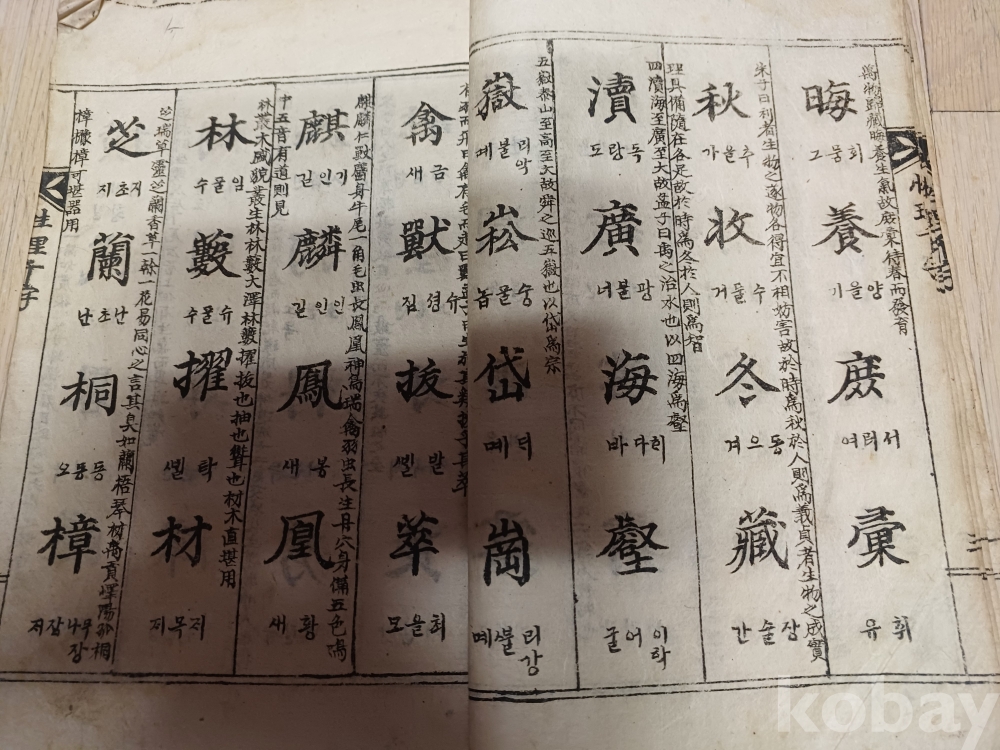 萬物歸藏晦養生氣故庶彙待春而發育
晦 養 庶 彙
그뭄회 기을양 여러서 유휘
朱子曰利者生物之遂物各得宜不相妨害故於時爲秋於人則爲義貞者生物之成實
秋 收 冬 藏
가을추 거둘수 겨으동 간술장
理具備隨在各足故於時爲冬於人則爲智
四瀆海至廣至大故孟子曰禹之治水也以四海爲壑
瀆 廣 海 壑
도랑독 너불광 바다히 굴어
五嶽泰山至高至大故舜之巡五嶽也以岱爲宗
嶽 崧 岱 崗
놉풀숭
禽 獸 拔 萃
새금 짐셩슈 쎌발 모을췌
麒麟仁獸麕身牛尾一角毛虫長鳳凰神鳥瑞禽羽虫長生丹穴身備五色鳴
中五音有道則見
麒 麟 鳳 凰
긔인기 긔인인 새봉 새황
林叢木盛貌叢生林林藪大澤林藪擢拔也抽也聳也材木直堪用
林 藪 擢 材
수풀임 수풀슈 쎌탁 저목저
芝瑞草靈芝蘭香草一榦一花易同心之言其臭如蘭梧琴材禹貢嶧陽孤桐
芝 蘭 桐 樟
지초지 난초난 오동동 저장나무장
樟櫲樟可堪器用
性理千字
kobay